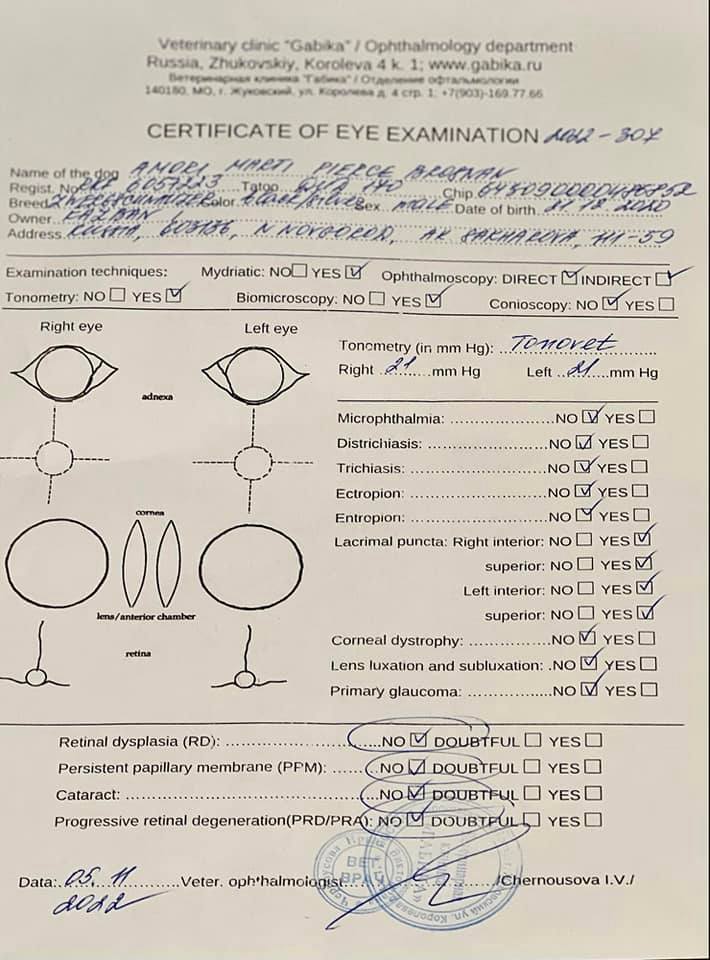 Veterinary clinic "Gabika" / Ophthalmology department
Russia, Zhukovskiy, Koroleva 4 k. 1; www.gabika.ru
Ветеринарная клиника "Габика" / Отделение офтальмологии
140180, МО, г. Жуковский, ул. Королева д. 4 стр. 1; +7(903)-169.77.66
CERTIFICATE OF EYE EXAMINATION 2022-307
Name of the dog AMORI MARTI PIERCE BROSNAN
Regist. No РКФ 6057223 Tatoo 140 Chip
Breed ZWERGSCHNAUZER Color black/silver Sex MALE Date of birth 2020
Owner
Address RUSSIA, 603136, N NOVGOROD, AK SAKHAROVA, 111-59
Examination techniques: Mydriatic: NO☐ YES☑ Ophthalmoscopy: DIRECT☑ INDIRECT☑
Tonometry: NO☐ YES☑ Biomicroscopy: NO☐ YES☑ Conioscopy: NO☑ YES☐
Right eye Left eye
adnexa
cornea
lens/anterior chamber
retina
Tonometry (in mm Hg): Tonovet
Right 21 mm Hg Left 21 mm Hg
Microphthalmia: NO☑ YES☐
Districhiasis: NO☑ YES☐
Trichiasis: NO☑ YES☐
Ectropion: NO☑ YES☐
Entropion: NO☑ YES☐
Lacrimal puncta: Right interior: NO☐ YES☑
superior: NO☐ YES☑
Left interior: NO☐ YES☑
superior: NO☐ YES☑
Corneal dystrophy: NO☑ YES☐
Lens luxation and subluxation: NO☑ YES☐
Primary glaucoma: NO☑ YES☐
Retinal dysplasia (RD): NO☑ DOUBTFUL☐ YES☐
Persistent papillary membrane (PPM): NO☑ DOUBTFUL☐ YES☐
Cataract: NO☑ DOUBTFUL☐ YES☐
Progressive retinal degeneration(PRD/PRA): NO☑ DOUBTFUL☐ YES☐
ВЕТ
ВРАЧ
Data: 05. 11 Veter. ophthalmologist /Chernousova I.V./
2022